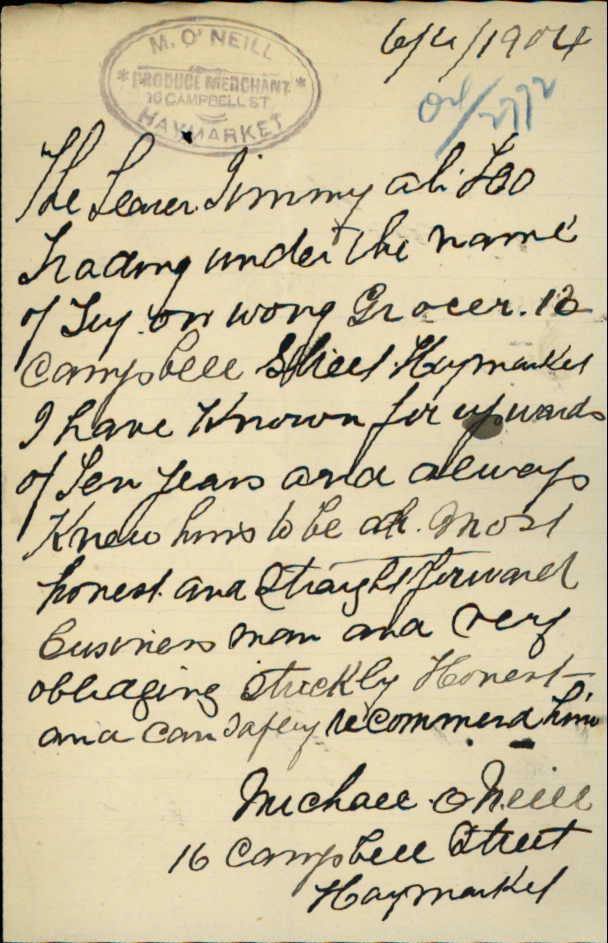 M. O'NEILL
PRODUCE MERCHANT
16 CAMPBELL ST
HAYMARKET
6/4/1904
The bearer Jimmy ah
Trading under the name
of on wong Grocer. 12
Campbell Street Haymarket
I have Known for upwards
of Ten years and always
Knew him to be a most
honest and straight forward
business man and very
obblageing strickly Honest
and can safley recommend him
Michael O Neill
16 Campbell Street
Haymarket